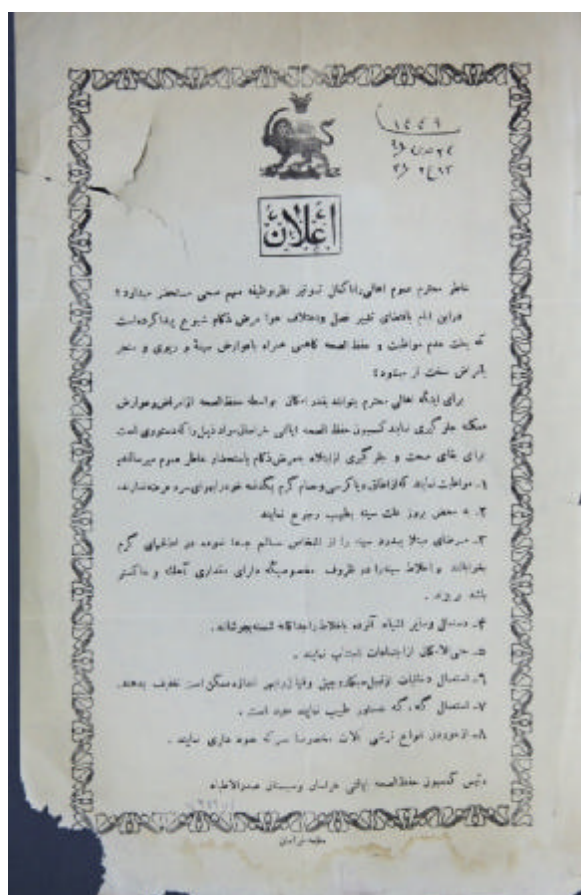 اعلان
خاطر محترم عموم اهالی را با کمال توقیر نظر بوظیفه مهم صحی مستحضر میدارد؛
در این ایام باقتضای تغییر فصل و اختلاف هوا مرض ذکام شیوع پیدا کرده است
که بعلت عدم مواظبت و حفظ الصحه گاهی همراه با عوارض سینهٔ و ریوی و منجر
بامراض سخت تر میشود؛
برای اینکه اهالی محترم بتوانند بقدر امکان بواسطه حفظ الصحه از مراض و عوارض
ممکنه جلوگیری نمایند کمسیون حفظ الصحه ایالتی خراسان مواد ذیل را که دستوری است
برای بقای صحت و جلوگیری از ابتلاء بمرض ذکام باستحضار خاطر عموم میرساند؛
۱- مواظبت نمایند که از اطاق و یا کرسی و حمام گرم یکدفعه خود را بهوای سرد عرضه ندارند.
۲- به محض بروز علت سینه بطبیب رجوع نمایند
۳- مرضای مبتلا بدرد سینه را از اشخاص سالم جدا نموده در اطاقهای گرم
بخوابانند و اخلاط سینه را در ظروف مخصوصیکه دارای مقداری آهک و خاکستر
باشد بریزند.
۴- دستمال و سایر اشیاء آلوده باخلاط را جداگانه شسته بجوشانند.
۵- حتی الامکان از اجتماعات اجتناب نمایند.
۶- استعمال دخانیات از قبیل سیگار و چپق و قلیان را بهر اندازه ممکن است تخفیف بدهند.
۷- استعمال گنه گنه بدستور طبیب نمایند مفید است.
۸- از خوردن انواع ترشی آلات مخصوصا سرکه خود داری نمایند.
رئیس کمسیون حفظ الصحه ایالتی خراسان و سیستان صدرالاطباء
مطبعه خراسان